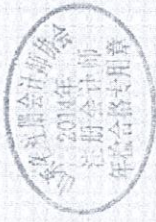 注册会计师协会
2014年
注册会计师
年检合格专用章